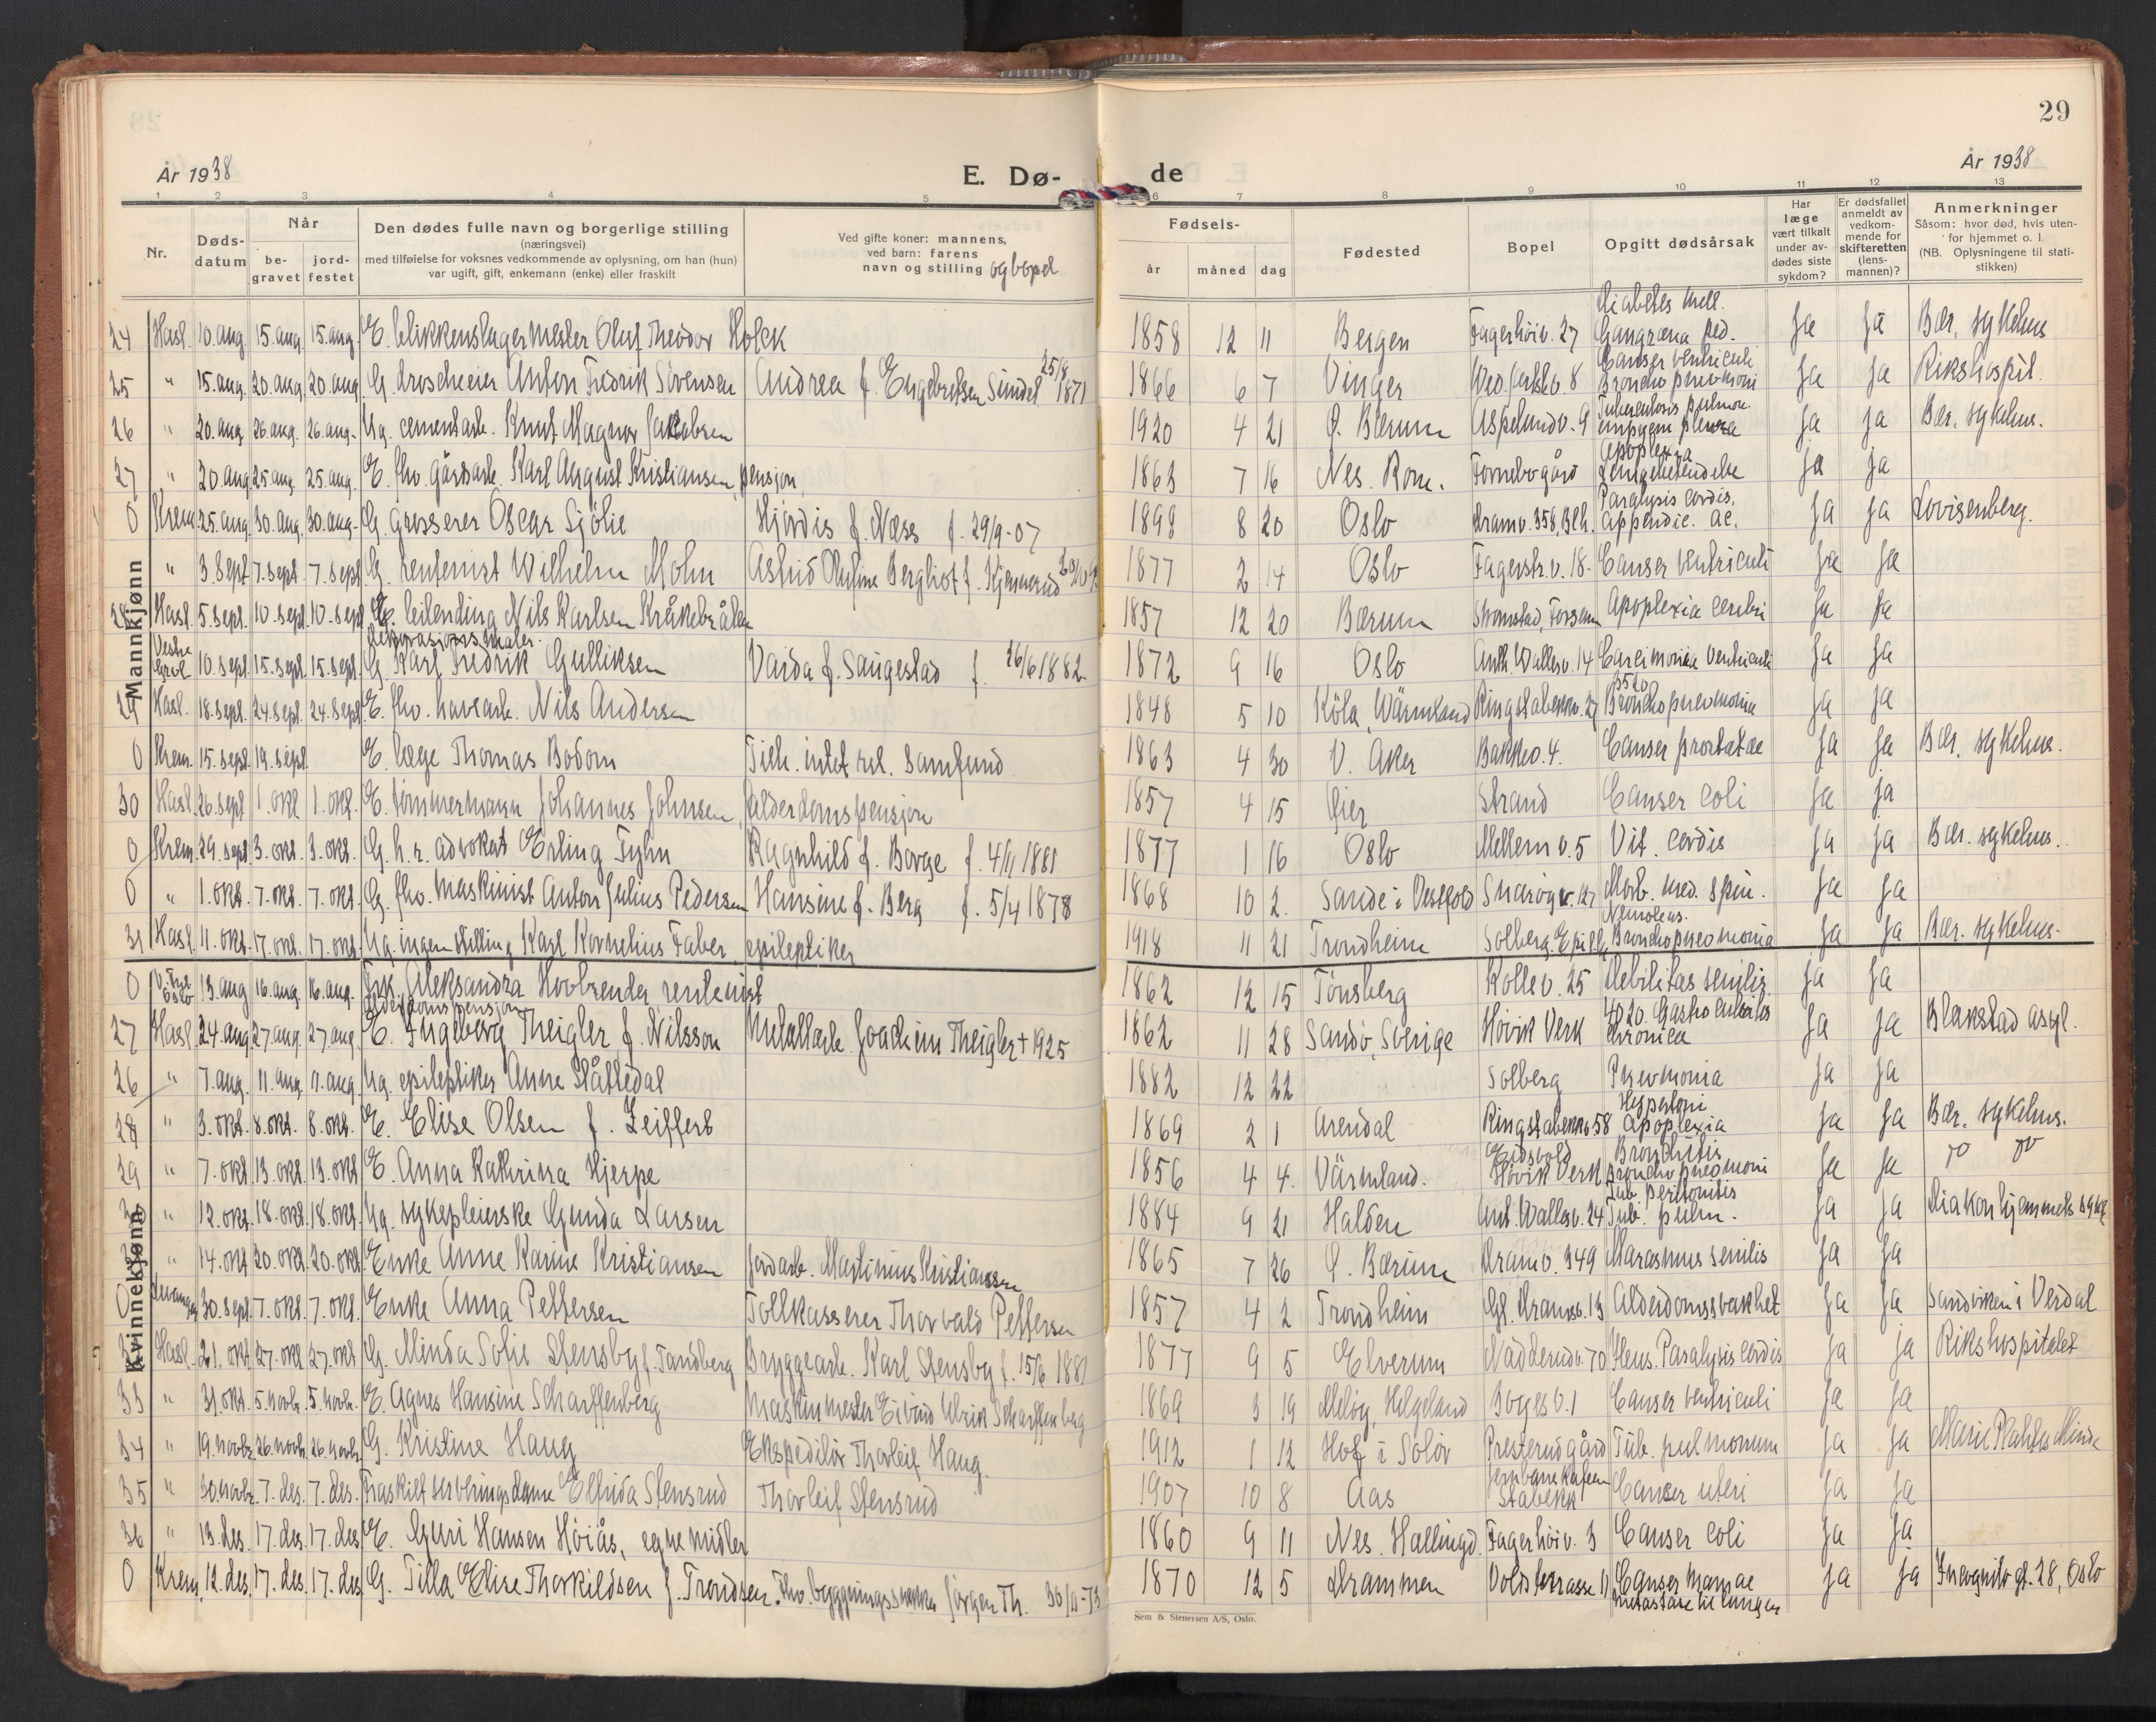 29
År 1938
E. Dø-
de
År 1938
1 2 3 4 5 6 7 8 9 10 11 12 13
Nr.
Døds-datum
Når
be-gravet
jord-festet
Den dødes fulle navn og borgerlige stilling
(næringsvei)
med tilføielse for voksnes vedkommende av oplysning, om han (hun)
var ugift, gift, enkemann (enke) eller fraskilt
Ved gifte koner: mannens,
ved barn: farens
navn og stilling og bopel
Fødsels-
år måned dag
Fødested
Bopel
Opgitt dødsårsak
Har læge vært tilkalt under av-dødes siste sykdom?
Er dødsfallet anmeldt av vedkom-mende for skifteretten (lens-mannen)?
Anmerkninger
Såsom: hvor død, hvis uten-for hjemmet o. l.
(NB. Oplysningene til stati-stikken)
Mannkjønn
24 Hasl. 10. aug. 15. aug. 15. aug. E. blikkenslagermester Oluf Theodor Holck 1858 12 11 Bergen Fagerhöiv. 27 Diabetes mell. Gangræna ped. Ja Ja Bær. sykehus
25 " 15. aug. 20. aug. 20. aug. G. droscheeier Anton Fredrik Sörensen Andrea f. Engebretsen Sundet 25/8 1871 1866 6 7 Vinger 8 Canser ventriculi Bronchopneumoni Ja Ja Rikshospit.
26 " 20. aug. 26. aug. 26. aug. Ug. cementarb. Knut Magnor Jakobsen 1920 4 21 Ö. Bærum Aspelundv. 9 Tuberculosis pulmon. empyem pleura Ja Ja Bær. sykehus.
27 " 20. aug. 25. aug. 25. aug. E. fhv. gårdsarb. Karl August Kristiansen, pensjon. 1863 7 16 Nes. Rom. Fornebo gård Apoplexia Lungebetendelse Ja Ja
0 Krem. 25. aug. 30. aug. 30. aug. G. grosserer Oscar Sjölie Hjördis f. Næss f. 29/9-07 1898 8 20 Oslo Dramv. 358, Blh. Paralysis cordis. Appendic. ac. Ja Ja Lovisenberg.
" 3. sept. 7. sept. 7. sept. G. rentenist Wilhelm Mohn Astrid Oluline Bergliot f. Kjennerud 1877 2 14 Oslo Fagerstr.v. 18. Canser ventriculi Ja Ja
28 Hasl. 5. sept. 10. sept. 10. sept. E. leilending Nils Karlsen Kråkebråten 1857 12 20 Bærum Stromstad, Apoplexia cerebri Ja Ja
Vestre Grvl. 10. sept. 15. sept. 15. sept. dekorasjonsmaler. G. Karl Fredrik Gulliksen Varda f. Saugestad f. 26/6 1882 1872 9 16 Oslo Anth. Wallesv. 14 Carcimonia Ventriculi Ja Ja
29 Hasl. 18. sept. 24. sept. 24. sept. E. fhv. havearb. Nils Andersen 1848 5 10 Köla, Wärmland Ringstabekkv. 27 Bronchopneumonia Ja Ja
0 Krem. 15. sept. 19. sept. E. læge Thomas Bodom Tilh. intet rel. samfund 1863 4 30 V. Aker Bakkev. 4. Canser prostatae Ja Ja Bær. sykehus.
30 Hasl. 26. sept. 1. okt. 1. okt. E. tömmermann Johannes Johnsen, alderdomspensjon 1857 4 15 Öier Strand Canser coli Ja Ja
0 Krem. 29. sept. 3. okt. 3. okt. G. h.r. advokat Erling Tyhn Ragnhild f. Borge f. 4/11 1881 1877 1 16 Oslo Mellemv. 5 Vit. cordis Ja Ja Bær. sykehus.
0 " 1. okt. 7. okt. 7. okt. G. fhv. maskinist Anton Julius Pedersen Hansine f. Berg f. 5/4 1878 1868 10 2. Sande i Vestfold Snaröyv. 127 Morb. med. spin. Ja Ja
31 Hasl. 11. okt. 17. okt. 17. okt. Ug. ingen stilling Karl Kornelius Faber, epileptiker 1918 11 21 Trondheim Solberg. Bronchopneomonia Ja Ja Bær. sykehus.
Kvinnekjønn
0 Oslo 13. aug. 16. aug. 16. aug. Frk. Aleksandra Hovbrender rentenist 1862 12 15 Tönsberg Kollev. 25 Debilitas senilis Ja Ja
27 Hasl. 24. aug. 27. aug. 27. aug. Alderdomspensjon E. Ingeborg Theigler f. Nilsson Metallarb. Joachim Theigler + 1925 1862 11 28 Sandö, Sverige Hövik Verk Gastro cronica Ja Ja Blakstad asyl.
26 " 7. aug. 11. aug. 11. aug. Ug. epileptiker Anne Slåttedal 1882 12 22 Solberg Pneumonia Ja Ja
28 " 3. okt. 8. okt. 8. okt. E. Elise Olsen f. Zeiffert 1869 2 1 Arendal Ringstabekkv. 58 Hypertoni Apoplexia Ja Ja Bær. sykehus.
29 " 7. okt. 13. okt. 13. okt. E. Anna Kathrina Hjerpe 1856 4 4. Värmland. Eidsvold Hövik Verk Bronchitis Bronchopneomoni Ja Ja
" 12. okt. 18. okt. 18. okt. Ug. sykepleierske Gunda Larsen 1884 9 21 Halden Ant. Wallesv. 24 Tub. peritonitis Tub. pulm. Ja Ja Diakonhjemmets syke
" 14. okt. 20. okt. 20. okt. Enke Anne Karine Kristiansen Jordarb. Martinius Kristiansen 1865 7 26 Ö. Bærum Dramv. 349 Marasmus senilis Ja Ja
0 30. sept. 7. okt. 7. okt. Enke Anna Pettersen Tollkasserer Thorvald Pettersen 1857 4 2 Trondheim Gl. Dramsv. 13 Alderdomssvakhet Ja Ja Sandviken i Verdal
Hasl. 21. okt. 27. okt. 27. okt. G. Minda Sofie Stensby f. Tandberg Bryggearb. Karl Stensby f. 15/6 1881 1877 9 5 Elverum Nadderudv. 70 Ileus. Paralysis cordis Ja Ja Rikshospitalet
33 " 31. okt. 5. novbr. 5. novbr. E. Agnes Hansine Scharffenberg Maskinmester Eivind Ulrik Scharffenberg 1869 3 19 Melöy, Helgeland Bogesv. 1 Canser ventriculi Ja Ja
34 " 19. novbr. 26. novbr. 26. novbr. G. Kristine Haug Ekspeditör Thorleif Haug. 1912 1 12 Hof i Solör Presterud gård Tub. pulmonum Ja Ja Marie Plahtes Minde
35 " 30. novbr. 7. des. 7. des. Fraskilt serveringsdame Elfrida Stensrud Thorleif Stensrud 1907 10 8 Aas Jernbanekafeen Stabekk Canser uteri Ja Ja
36 " 13. des. 17. des. 17. des. E. Guri Hansen Höiås, egne midler 1860 9 11 Nes. Hallingd. Fagerhöiv. 3 Canser coli Ja Ja
0 Krem. 12. des. 17. des. 17. des. G. Tilla Elise Thorkildsen f. Trondsen. Fhv. byggningssnekker Jörgen Th. 30/11-73 1870 12 5 Drammen Voldsterrasse 11 Canser mamae metastase til lungen Ja Ja Incognito gt. 28, Oslo
Sem & Stenersen A/S, Oslo.